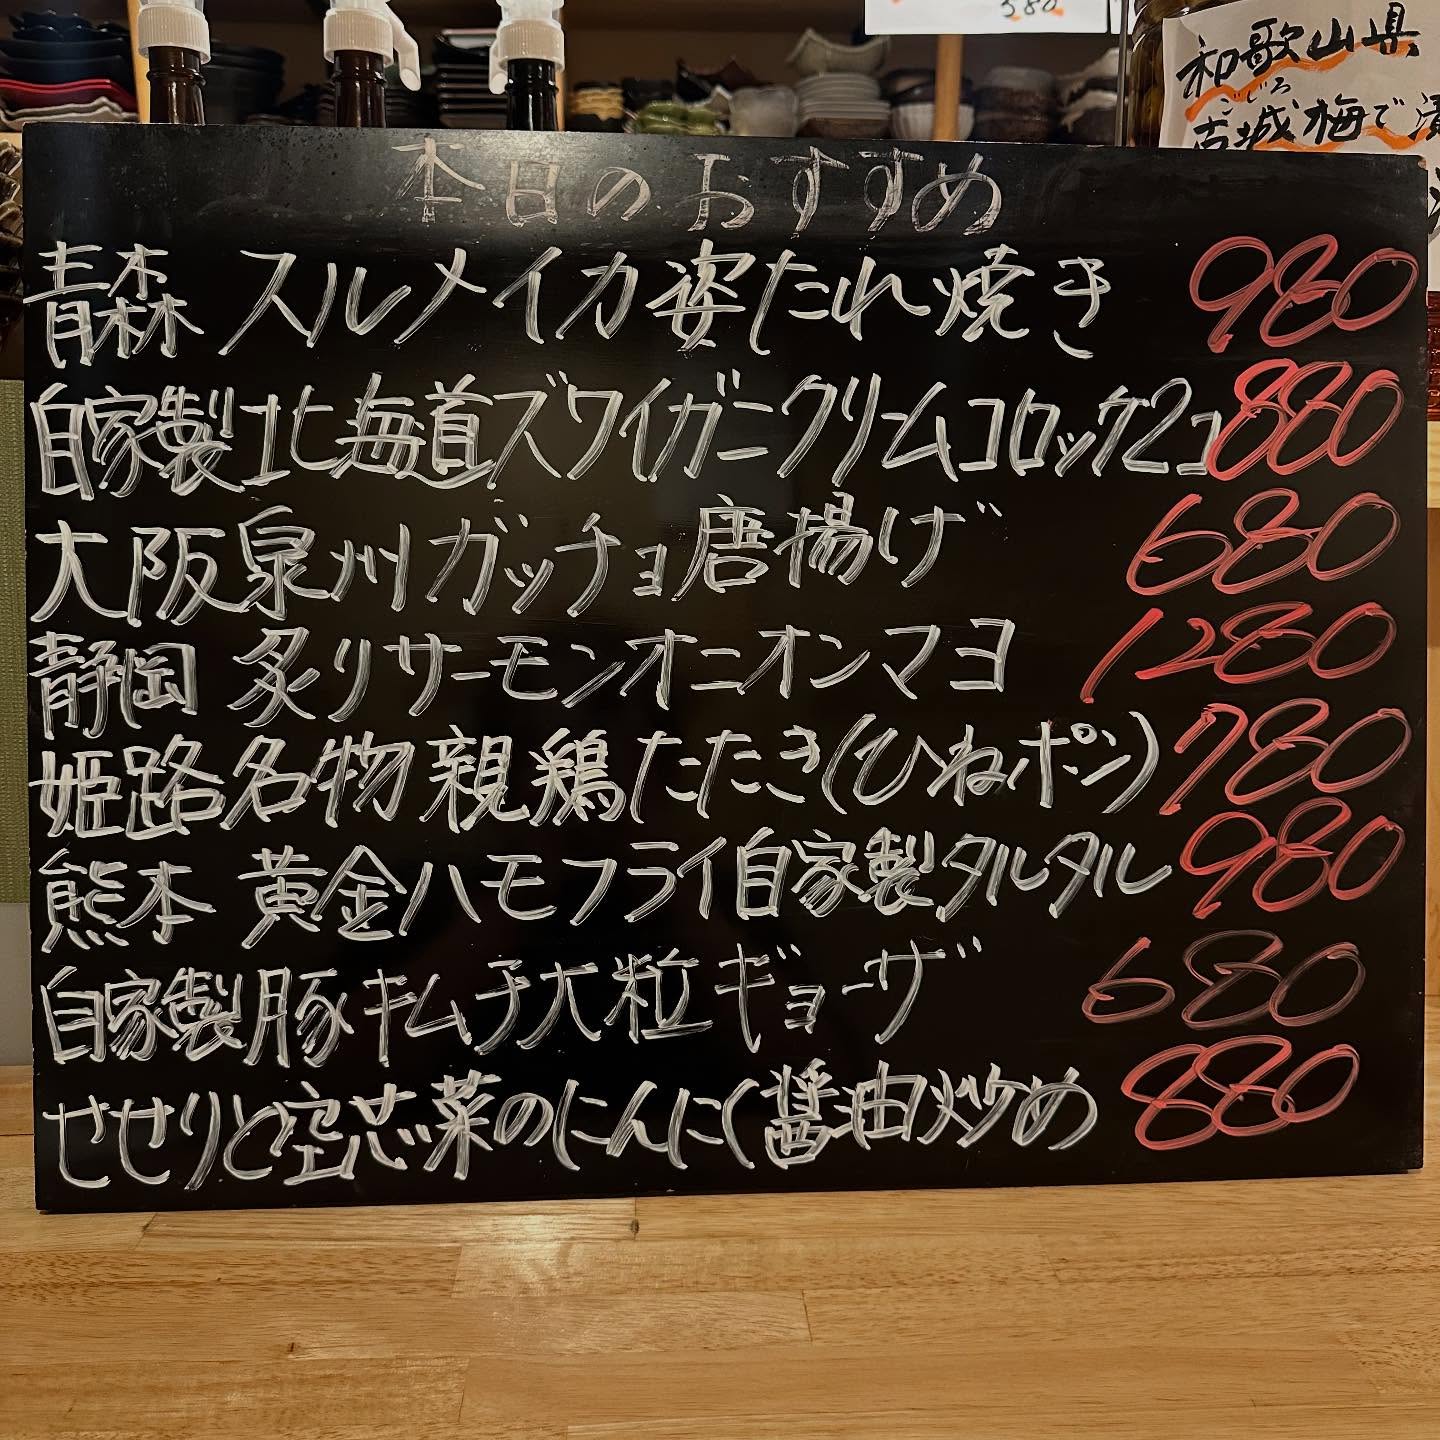 580
和歌山県
ごじろ
古城梅で漬
本日のおすすめ
青森 スルメイカ姿たれ焼き 980
自家製北海道ズワイガニクリームコロッケ2コ 880
大阪泉州ガッチョ唐揚げ 680
静岡 炙りサーモンオニオンマヨ 1280
姫路名物親鶏たたき(ひねポン) 780
熊本 黄金ハモフライ自家製タルタル 980
自家製豚キムチ大粒ギョーザ 680
せせりと空芯菜のにんにく醤油炒め 880